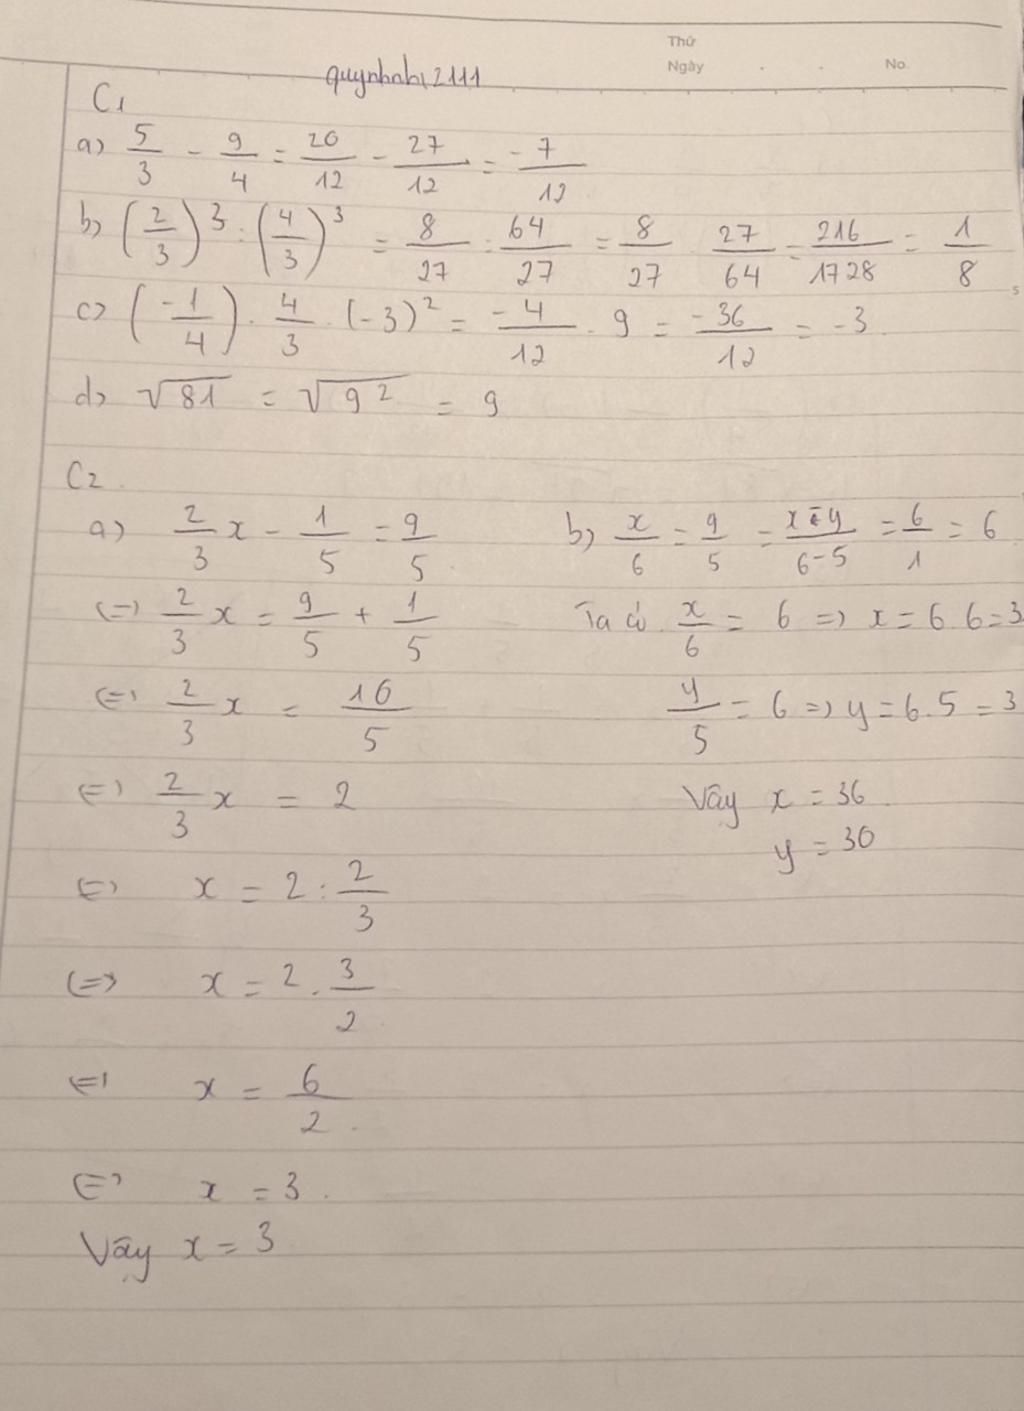 Thứ
Ngày . . No.
quynhnhi2111
C1
a) 5/3 - 9/4 = 20/12 - 27/12 = -7/12
b) (2/3)³ : (4/3)³ = 8/27 : 64/27 = 8/27 . 27/64 = 216/1728 = 1/8
c) (-1/4) . 4/3 . (-3)² = -4/12 . 9 = -36/12 = -3
d) √81 = √9² = 9
C2
a) 2/3 x - 1/5 = 9/5
(=) 2/3 x = 9/5 + 1/5
(=) 2/3 x = 10/5
(=) 2/3 x = 2
(=) x = 2 : 2/3
(=) x = 2 . 3/2
(=) x = 6/2
(=) x = 3
Vậy x = 3
b) x/6 = y/5 = x-y/6-5 = 6/1 = 6
Ta có x/6 = 6 => x = 6.6 = 3
y/5 = 6 => y = 6.5 = 3
Vậy x = 36
y = 30